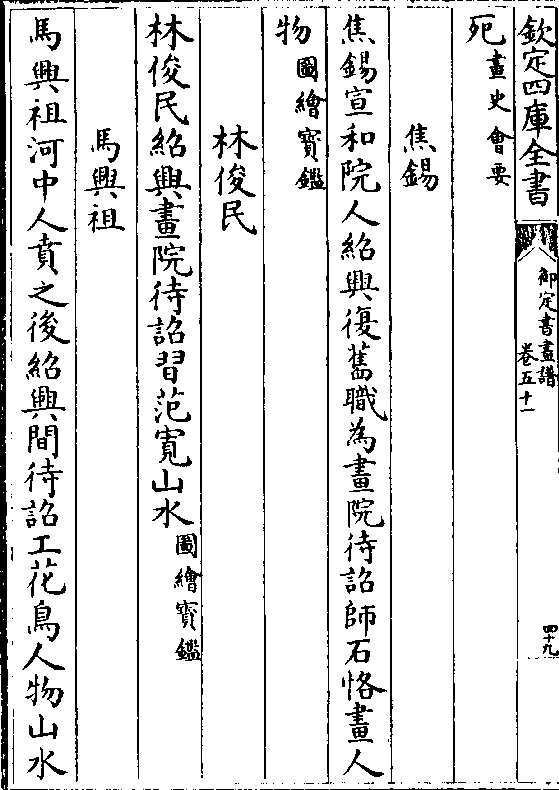 欽定四庫全書
御定書畫譜
卷五十一
四十九
死畫史會要
焦錫
焦錫宣和院人紹興復舊職為畫院待詔師石恪畫人
物圖繪寶鑑
林俊民
林俊民紹興畫院待詔習范寛山水圖繪寶鑑
馬興祖
馬興祖河中人賁之後紹興間待詔工花鳥人物山水